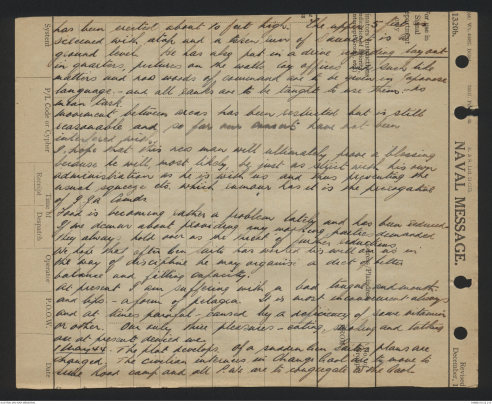 has been erected about 10 feet high. The upper 5 feet
ground level. He has also put in a drive regarding lay out
in quarters, pictures on the walls, lay offices and such like
matters and now words of command are to be given in Japanese
language - and all ranks are to be taught to use them. - No
mean task.
Movement between areas has been restricted but is still
reasonable and so far our concerts have not been
interfered with.
I hope that this new man will ultimately prove a blessing
because he will most likely be just as strict with his own
administration as he is with us and thus preventing the
usual squeeze etc which rumour has it is the prerogative
of I.J.A. Comds.
Food is becoming rather a problem lately and has been reduced.
If we demur about providing any working parties demanded
they always hold over us the threat of further reductions.
We hope that after him who has worked his will on us in
the way of discipline he may organise a diet of better
balance and filling capacity.
At present I am suffering with a bad tongue and mouth
and lips - a form of pelagra. It is most inconvenient always
and at times painful - caused by a deficiency of some vitamin
or other. Our only three pleasures - eating, smoking and talking
are at present denied me.
The plot develops. Of a sudden our plans are
changed. The civilian internees in Changi Gaol are to move to
Sime Road camp and all P.s.W. are to congregate in the Gaol
NAVAL MESSAGE.
System
P/L Code or Cypher
Time of
Receipt
Despatch
Operator
P.O.O.W.
Date